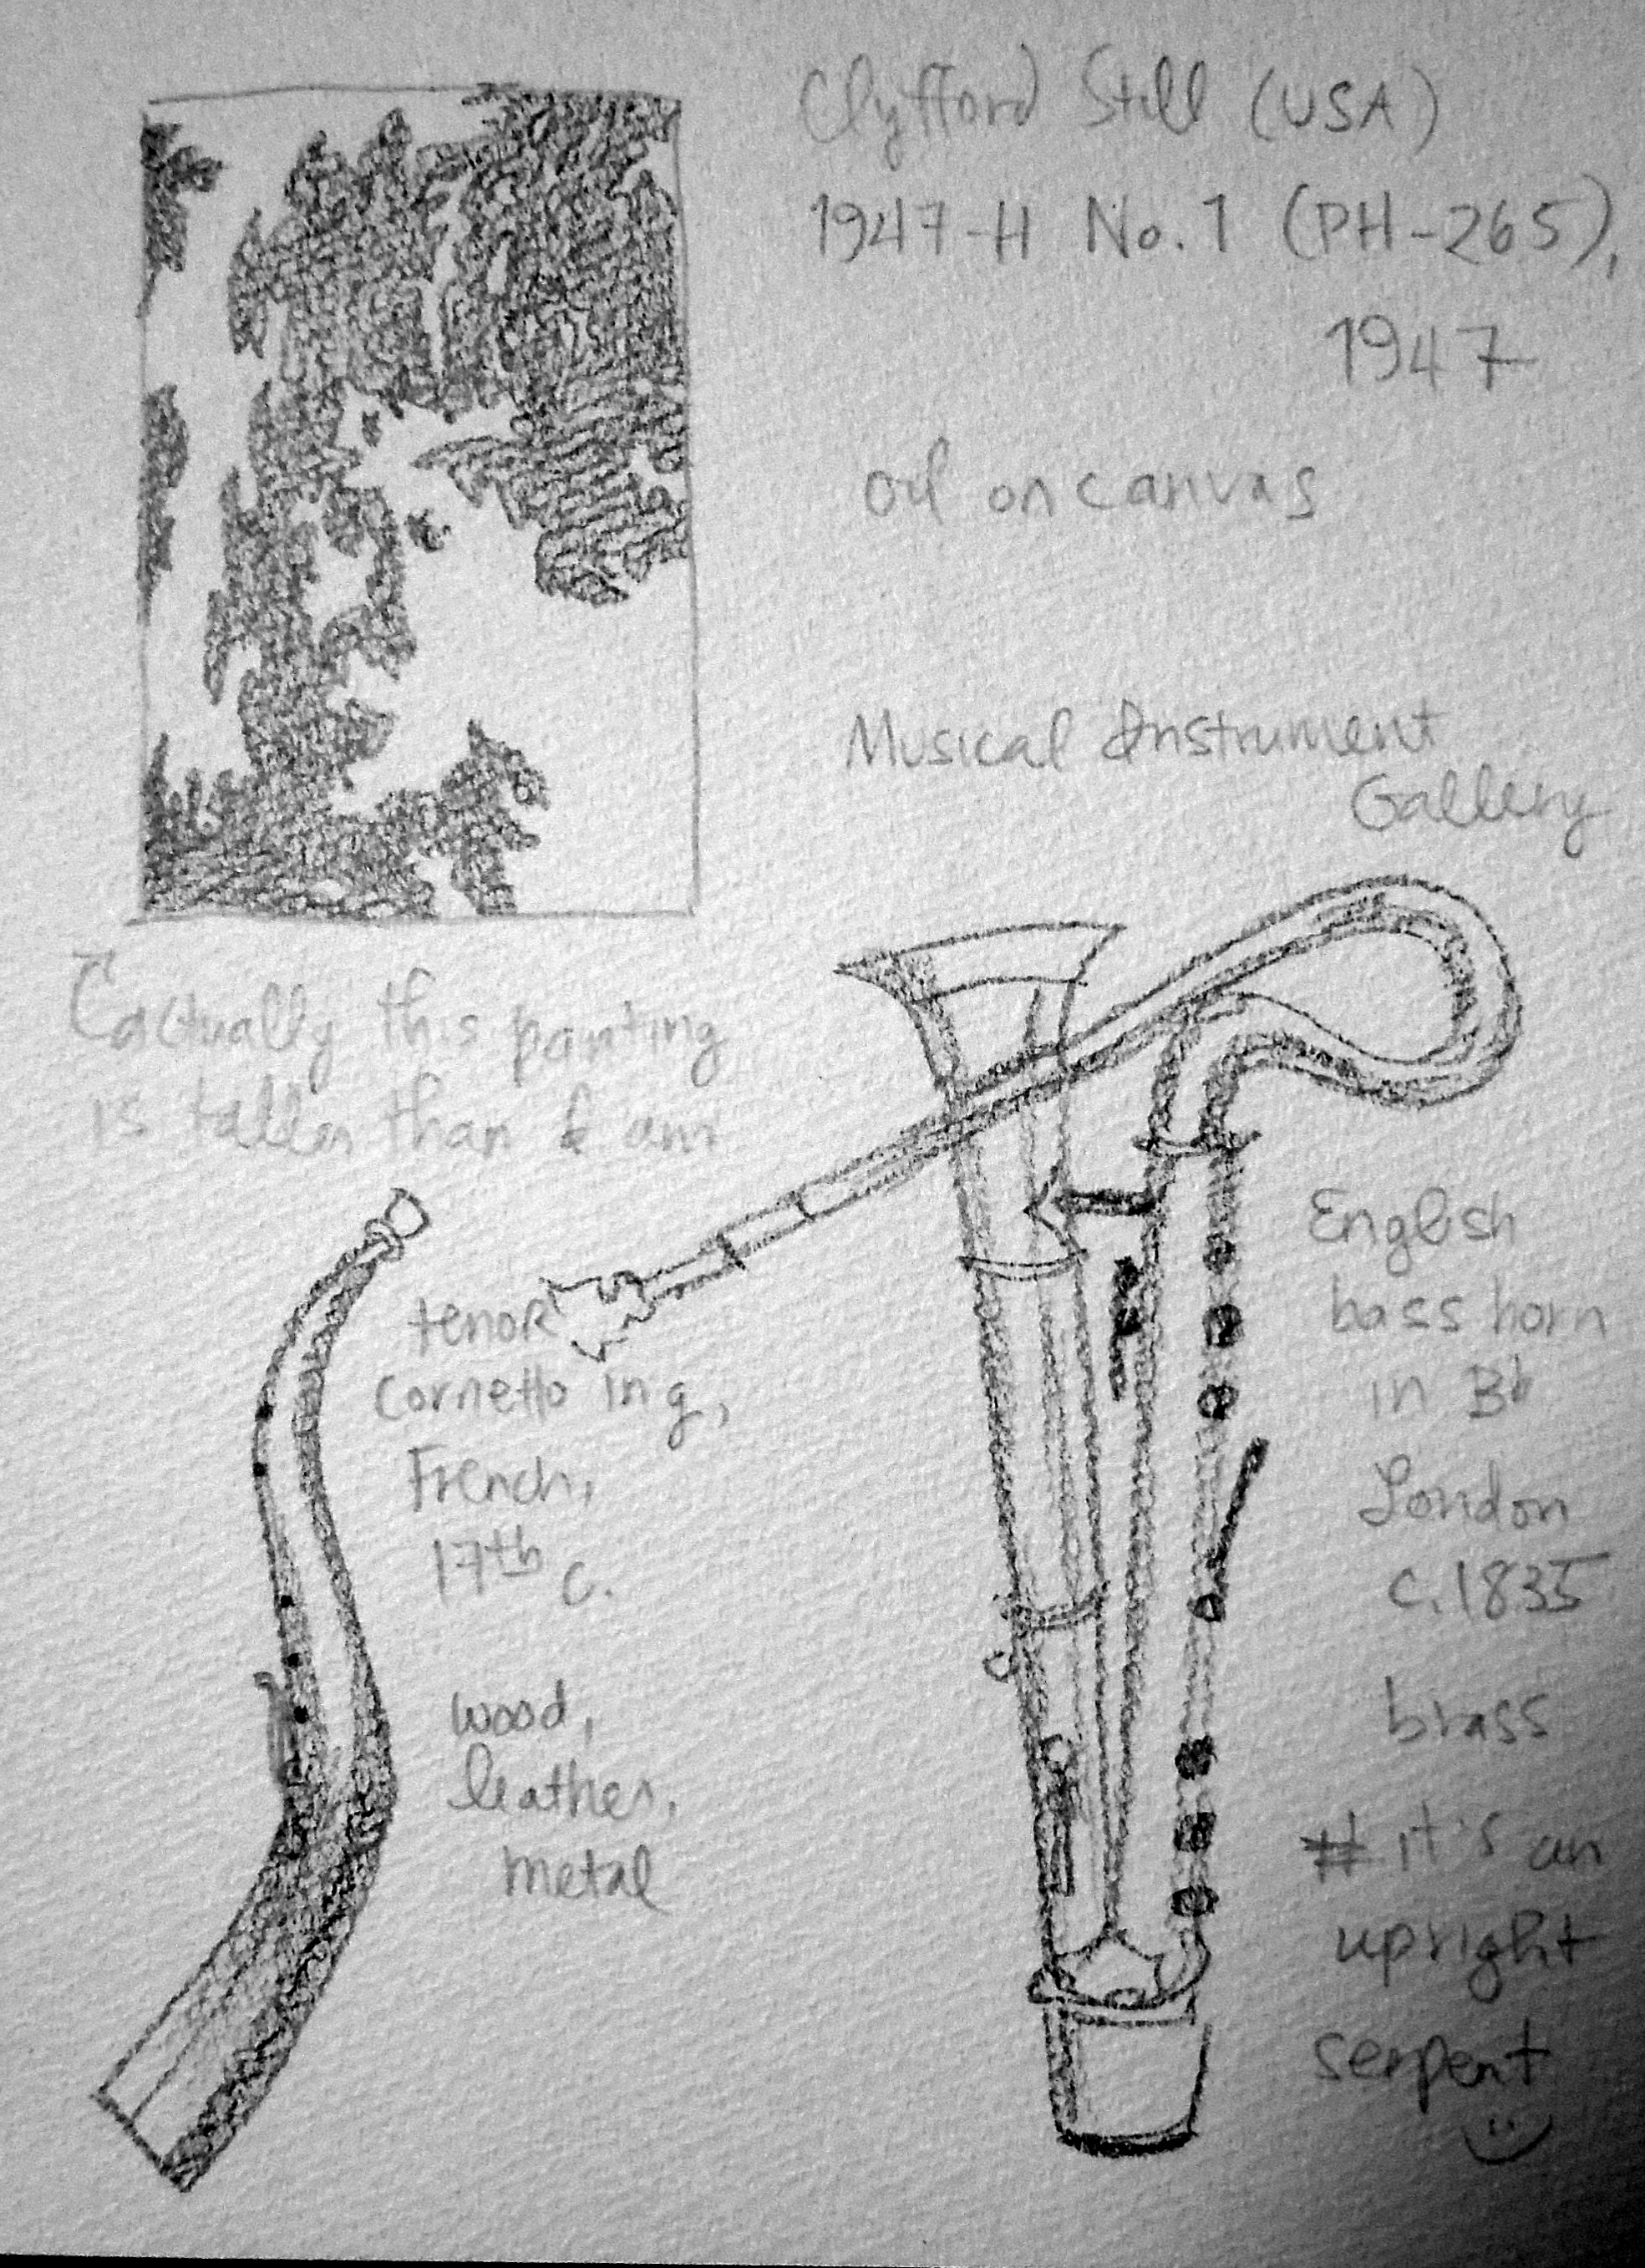 Clyfford Still (USA)
1947-H No.1 (PH-265),
1947
oil on canvas
Musical Instrument
Gallery
actually this painting
is taller than I am
tenor
cornetto in g,
French,
17th c.
wood,
leather,
metal
English
bass horn
in B♭
London
c.1835
brass
# it's an
upright
serpent